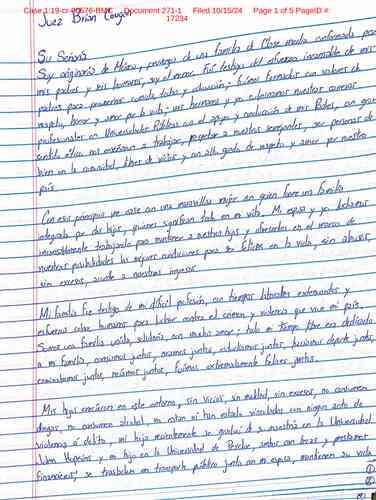 Case 1:19-cr-00576-BMC Document 271-1 Filed 10/15/24 Page 1 of 5 PageID #:
17234
Juez Brian Cougan
Su Señoría
Soy originario de México, provengo de una familia de Clase media conformada por
mis padres y seis hermanos, soy el menor. Fui testigo del esfuerzo incansable de mis
padres para proveernos comida techo y educación; fuimos formados con valores de
respeto, honor y amor por la vida; mis hermanos y yo culminamos nuestras carreras
profesionales en Universidades Públicas con el apoyo y conducción de mis Padres, con gran
sentido ético, nos enseñaron a trabajar, respetar a nuestros semejantes, ser personas de
bien en la comunidad, libres de vicios y un alto grado de respeto y amor por nuestro
país.
Con esos principios me casé con una maravillosa mujer en quien formé una familia
integrada por dos hijos, quienes significan todo en mi vida. Mi esposa y yo habíamos
incansablemente trabajado para mantener a nuestros hijos y ofrecerles en el marco de
nuestras posibilidades las mejores condiciones para ser felices en la vida, sin abusos,
sin excesos, acorde a nuestros ingresos.
Mi familia fue testigo de mi difícil profesión, con tiempos laborales extenuantes y
esfuerzos sobre humanos para luchar contra el crimen y violencia que vive mi país.
Somos una familia unida, solidaria, con mucho amor; todo mi tiempo libre era dedicado
a mi familia, comíamos juntos, orábamos juntos, estudiábamos juntos, hacíamos deporte juntos,
caminábamos juntos, reíamos juntos, fuimos extremadamente felices juntos.
Mis hijos crecieron en este entorno, sin vicios, sin maldad, sin excesos, no consumen
drogas, no consumen alcohol, no están ni han estado vinculados con ningún acto de
violencia o delito, mi hija recientemente se graduó de su maestría en la Universidad
John Hopkins y mi hijo en la Universidad de Purdue, ambos con becas y préstamos
financieros, se trasladan en transporte público junto con mi esposa, mantienen su vida